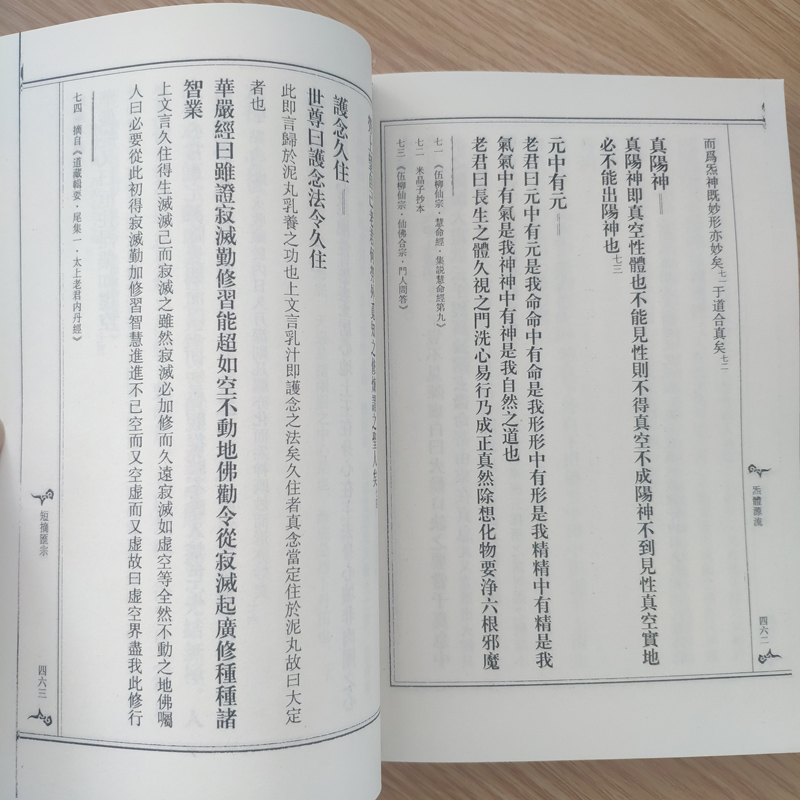 炁體源流
四六二
而爲炁神既妙形亦妙矣七一于道合真矣七二
真陽神
真陽神即真空性體也不能見性則不得真空不成陽神不到見性真空實地
必不能出陽神也七三
元中有元
老君曰元中有元是我命命中有命是我形形中有形是我精精中有精是我
氣氣中有氣是我神神中有神是我自然之道也
老君曰長生之體久視之門洗心易行乃成正真然除想化物要浄六根邪魔
七一 《伍柳仙宗·慧命經·集説慧命經第九》
七二 米晶子抄本
七三 《伍柳仙宗·仙佛合宗·門人問答》
護念久住
世尊曰護念法令久住
此即言歸於泥丸乳養之功也上文言乳汁即護念之法矣久住者真念當定住於泥丸故曰大定
者也
華嚴經曰雖證寂滅勤修習能超如空不動地佛勸令從寂滅起廣修種種諸
智業
上文言久住得生滅滅己而寂滅之雖然寂滅必加修而久遠寂滅如虚空等全然不動之地佛囑
人曰必要從此初得寂滅勤加修習智慧進進不已空而又空虚而又虚故曰虚空界盡我此修行
七四 摘自《道藏輯要·尾集一·太上老君内丹經》
短摘匯宗
四六三